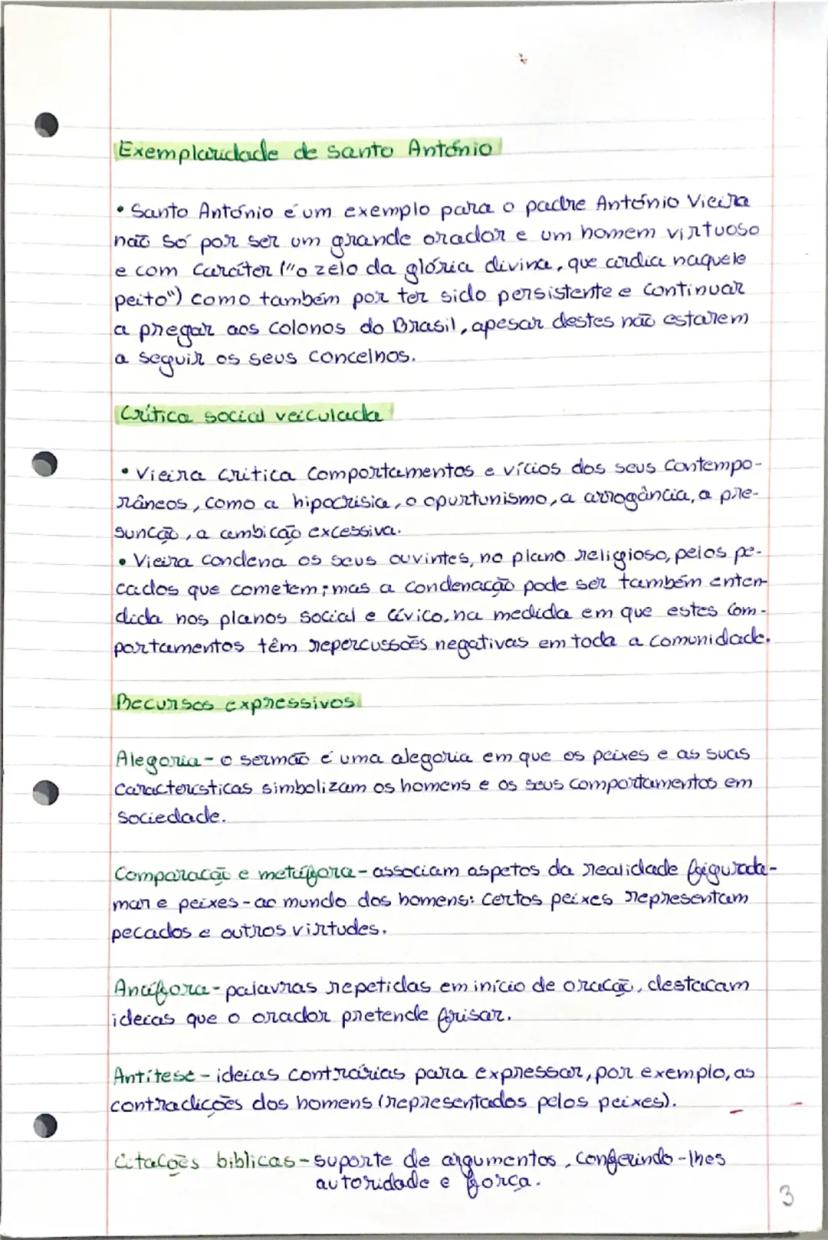 Exemplaridade de santo António
• Santo António é um exemplo para o padre António Vieira
não só por ser um grande orador e um homem virtuoso
e com caráter ("o zelo da glória divina, que ardia naquele
peito") como também por ter sido persistente e continuar
a pregar aos colonos do Brasil, apesar destes não estarem
a seguir os seus concelhos.
Crítica social veiculada
• Vieira critica comportamentos e vícios dos seus contempo-
râneos, como a hipocrisia, o opurtunismo, a arrogância, a pre-
sunção, a ambição excessiva.
• Vieira condena os seus ouvintes, no plano religioso, pelos pe-
cados que cometem; mas a condenação pode ser também enten-
dida nos planos social e cívico, na medida em que estes com-
portamentos têm repercussões negativas em toda a comunidade.
Recursos expressivos
Alegoria - o sermão é uma alegoria em que os peixes e as suas
características simbolizam os homens e os seus comportamentos em
sociedade.
Comparação e metáfora - associam aspetos da realidade figurada -
mar e peixes - ao mundo dos homens: certos peixes representam
pecados e outros virtudes.
Anáfora - palavras repetidas em início de oração, destacam
ideias que o orador pretende frisar.
Antítese - ideias contrárias para expressar, por exemplo, as
contradições dos homens (representados pelos peixes).
Citações biblicas - suporte de argumentos, conferindo-lhes
autoridade e força.
3